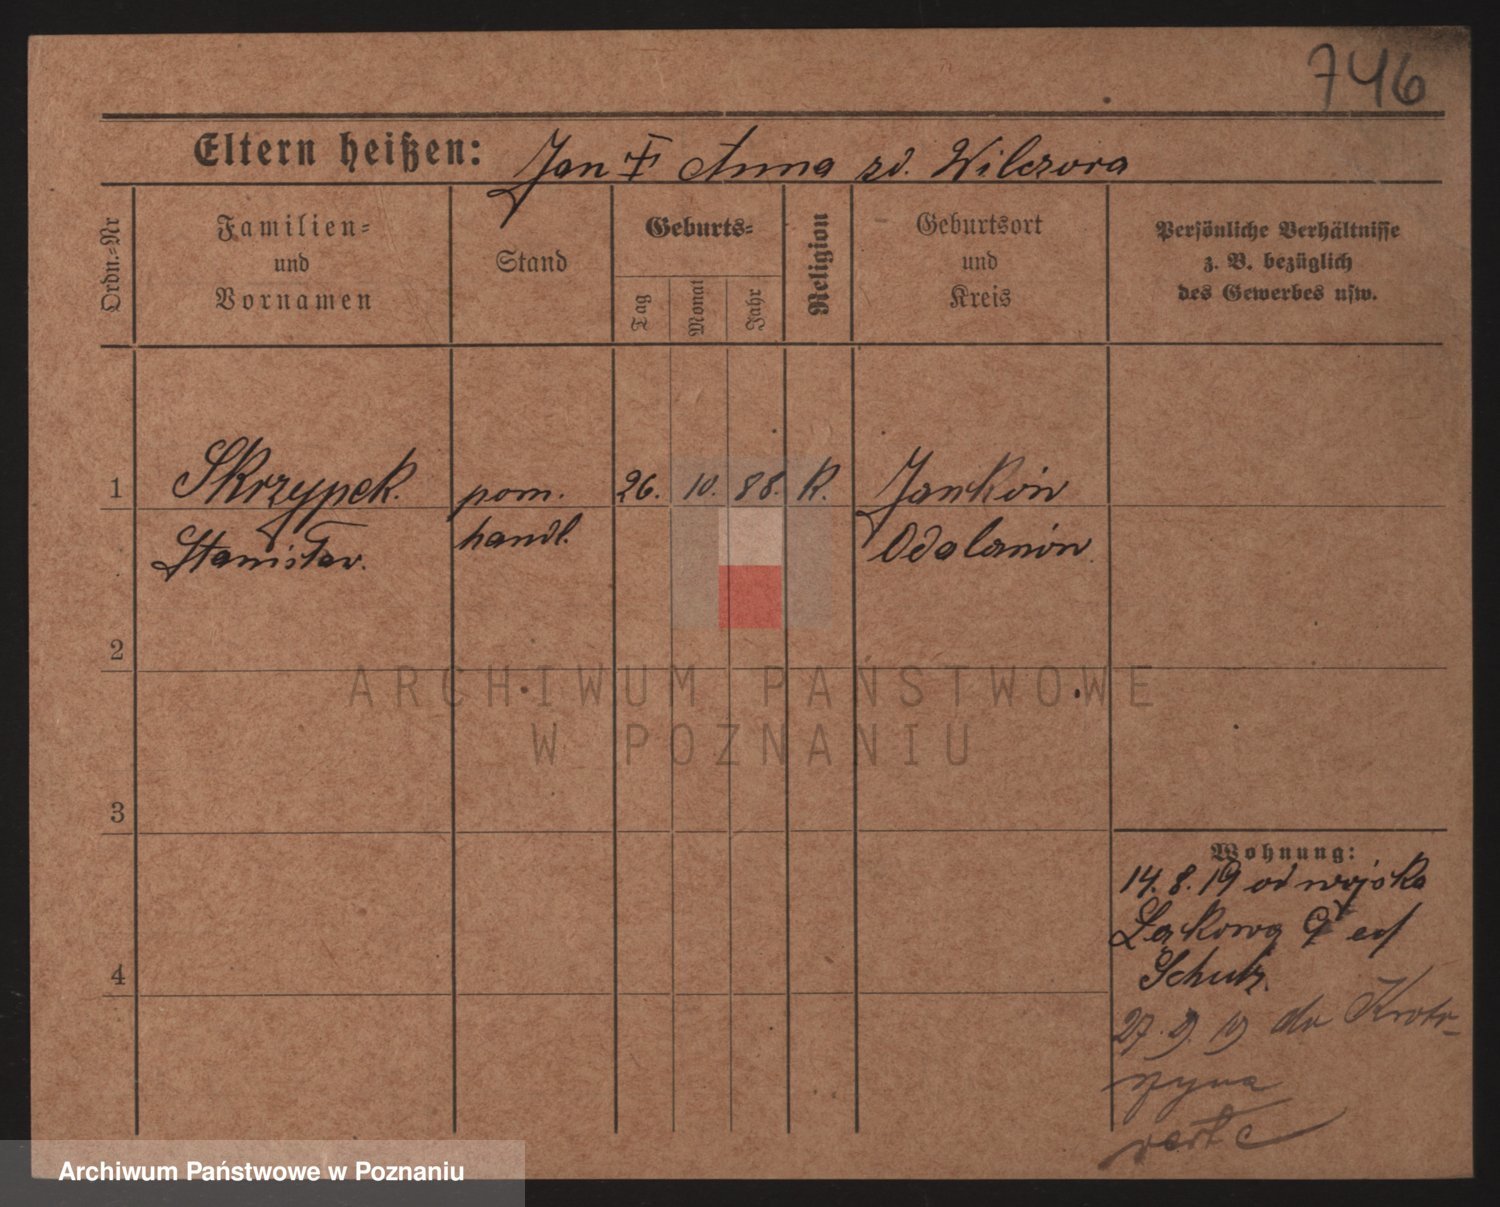 746
Eltern heißen: Jan Anna zd. Wilczora
Ordn.-Nr
Familien-
und
Vornamen
Stand
Geburts-
Tag
Monat
Jahr
Religion
Geburtsort
und
Kreis
Persönliche Verhältnisse
z. B. bezüglich
des Gewerbes usw.
1
Skrzypek. pom. 26. 10. 88. K. Janków
Stanisław. handl. Odolanów.
2
ARCHIWUM PAŃSTWOWE
W POZNANIU
3
Wohnung:
14. 8. 19 od wojska
Łąkowa
Schulz.
4
27. 9. 19 do Kroto-
szyna
verte
Archiwum Państwowe w Poznaniu